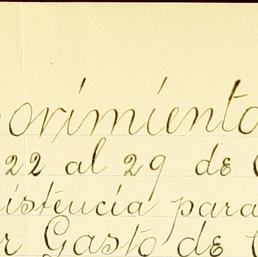 ovimiento
22 al 29 de
istencia para
r Gasto de